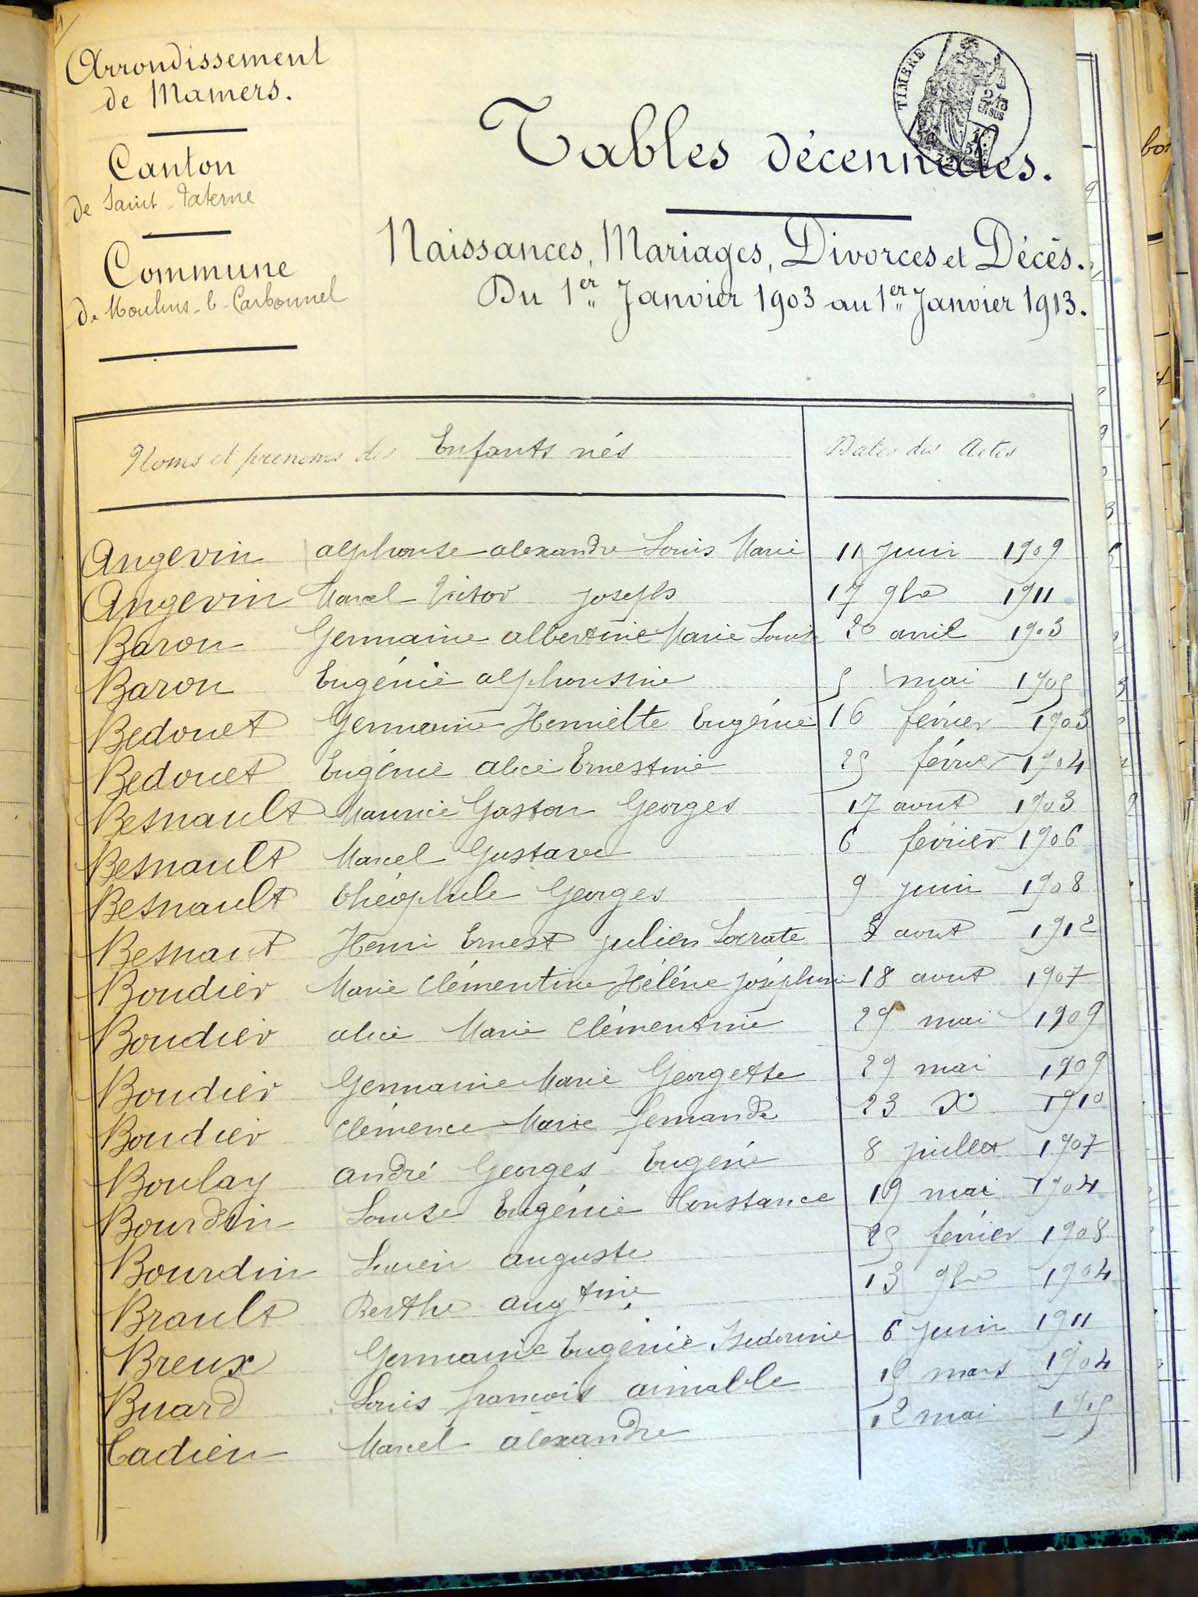 Arrondissement
de Mamers.
Canton
de Saint-Paterne
Commune
de Moulins-le-Carbonnel
TIMBRE
Tables décennales.
Naissances, Mariages, Divorces et Décès.
Du 1er Janvier 1903 au 1er Janvier 1913.
Noms et prénoms des Enfants nés Dates des Actes
Angevin alphonse alexandre Louis Marie 11 juin 1909
Angevin Marcel Victor joseph 17 9bre 1911
Baron Germaine albertine Marie Louise 20 avril 1903
Baron Eugénie alphonsine 5 mai 1905
Bedouet Germaine Henriette Eugénie 16 février 1903
Bedouet Eugénie alice Ernestine 25 février 1904
Besnault Maurice Gaston Georges 17 aout 1903
Besnault Marcel Gustave 6 février 1906
Besnault théophile Georges 9 juin 1908
Besnaut Henri Ernest julien Socrate aout 1912
Boudier Marie Clémentine Hélène joséphine 18 aout 1907
Boudier alice Marie Clémentine 29 mai 1909
Boudier Germaine Marie Georgette 29 mai 1909
Boudier Clémence Marie fernande 23 X 1910
Boulay andré Georges Eugéne 8 juillet 1907
Bourdin Louise Eugénie Constance 19 mai 1904
Bourdin Lucien auguste 25 février 1908
Brault Berthe augtine 13 9bre 1904
Breux Germaine Eugénie 6 juin 1911
Buard Louis françois aimable 19 mars 1904
Cadieu Marcel alexandre 12 mai